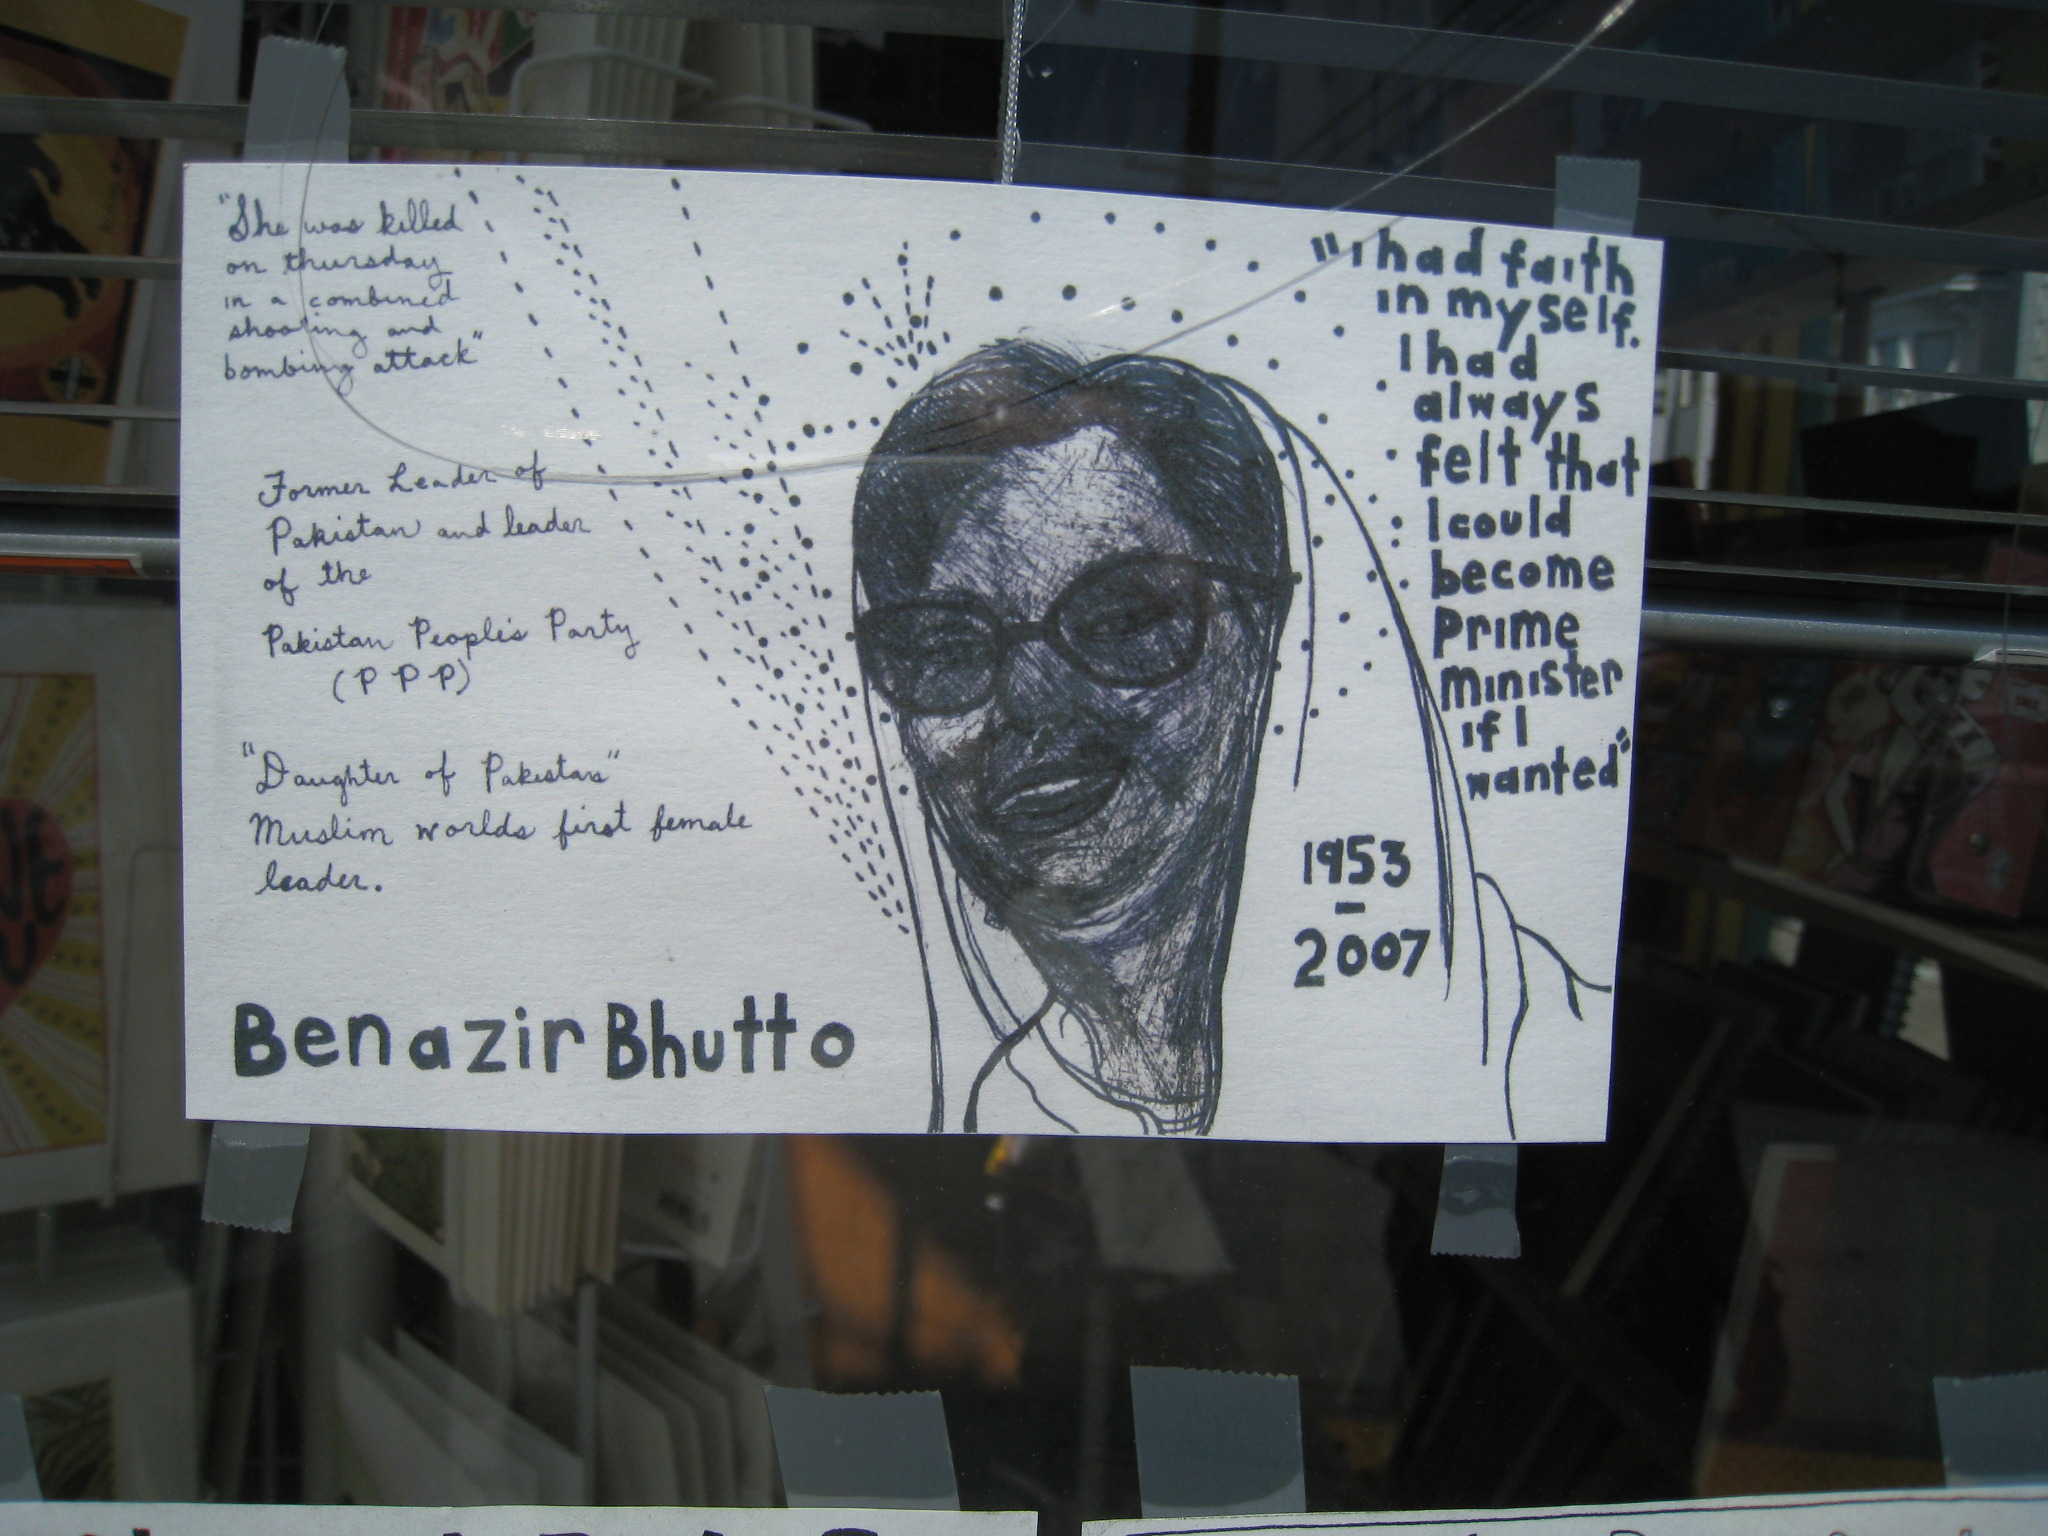 "She was killed
on thursday
in a combined
shooting and
bombing attack"
Former Leader of
Pakistan and leader
of the
Pakistan People's Party
(P P P)
"Daughter of Pakistan"
Muslim worlds first female
leader.
Benazir Bhutto
"I had faith
in myself.
I had
always
felt that
I could
become
Prime
minister
if I
wanted"
1953
-
2007